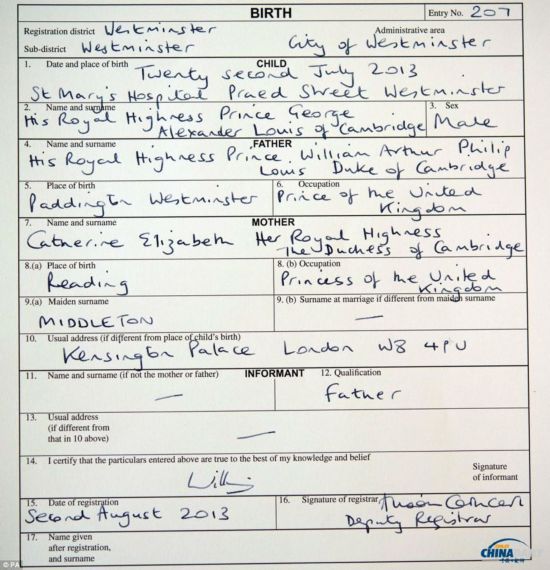 BIRTH
Entry No. 207
Registration district Westminster
Administrative area
Sub-district Westminster
City of Westminster
CHILD
1. Date and place of birth
Twenty second July 2013
St Mary's Hospital Praed Street Westminster
2. Name and surname
His Royal Highness Prince George
Alexander Louis of Cambridge
3. Sex
Male
FATHER
4. Name and surname
His Royal Highness Prince William Arthur Philip
Louis Duke of Cambridge
5. Place of birth
Paddington Westminster
6. Occupation
Prince of the United
Kingdom
MOTHER
7. Name and surname
Catherine Elizabeth Her Royal Highness
The Duchess of Cambridge
8.(a) Place of birth
Reading
8. (b) Occupation
Princess of the United
Kingdom
9.(a) Maiden surname
MIDDLETON
9. (b) Surname at marriage if different from maiden surname
—
10. Usual address (if different from place of child's birth)
Kensington Palace London W8 4PU
INFORMANT
11. Name and surname (if not the mother or father)
—
12. Qualification
Father
13. Usual address
(if different from
that in 10 above)
—
14. I certify that the particulars entered above are true to the best of my knowledge and belief
Signature
of informant
15. Date of registration
Second August 2013
16. Signature of registrar
Deputy Registrar
17. Name given
after registration,
and surname
© PA
CHINA